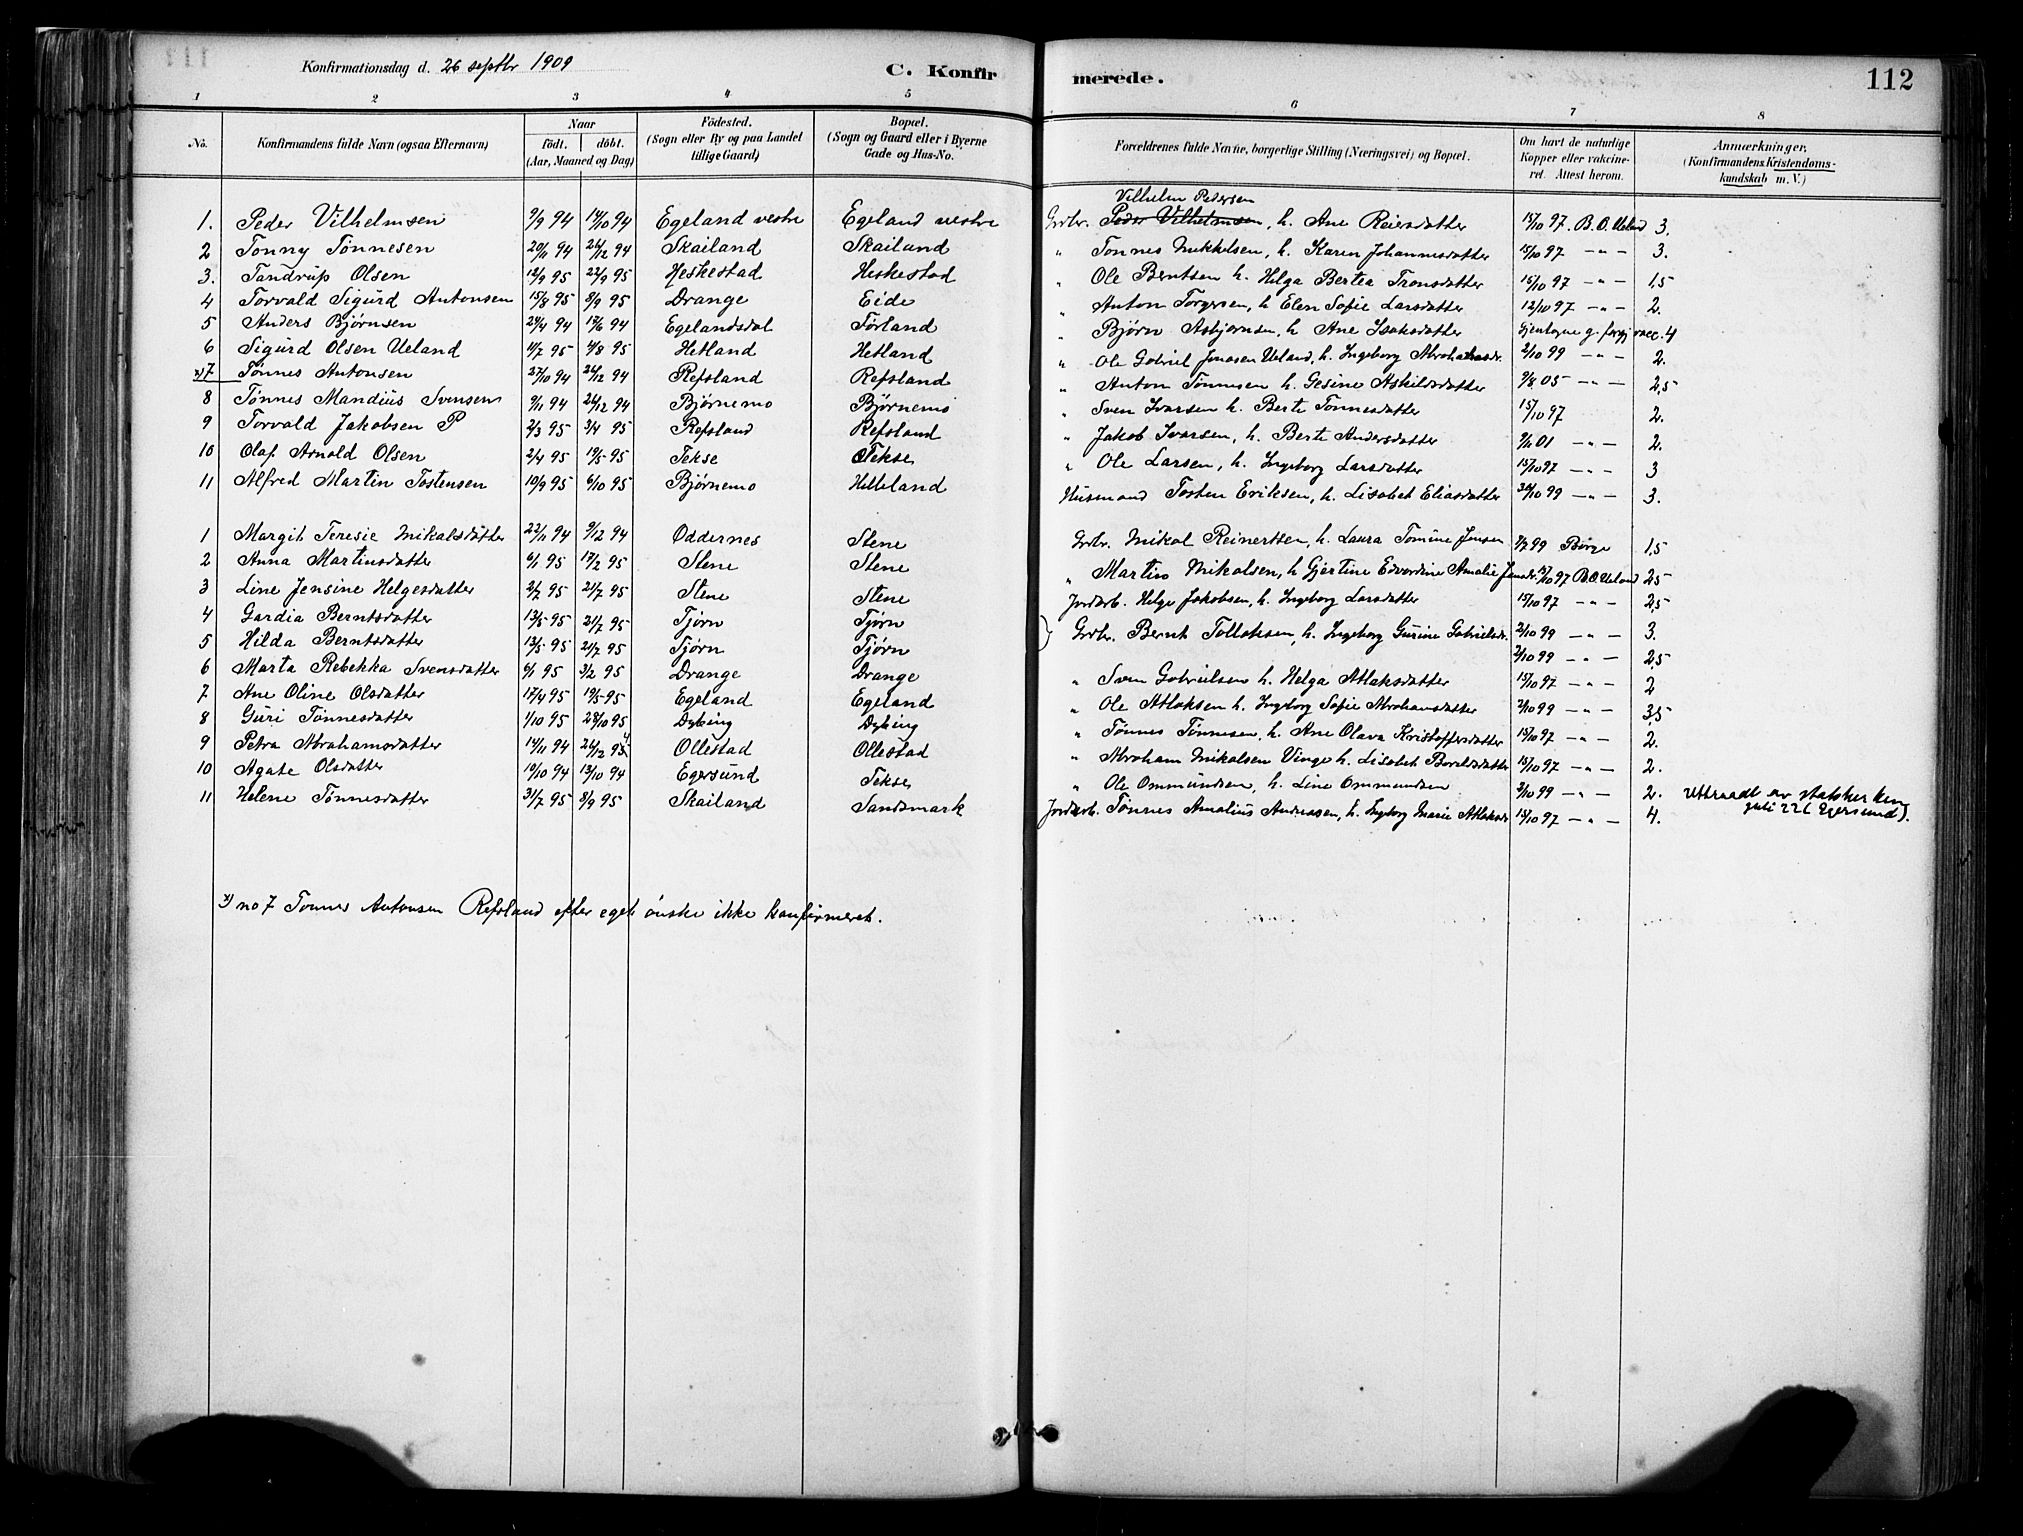 Konfirmationsdag d. 26 septbr 1909 C. Konfirmerede. 112
1 2 3 4 5 6 7 8
No. Konfirmandens fulde Navn (ogsaa Efternavn) Naar födt. döbt. (Aar, Maaned og Dag) Födested. (Sogn eller By og paa Landet tillige Gaard) Bopæl. (Sogn og Gaard eller i Byerne Gade og Hus-No. Forældrenes fulde Navne, borgerlige Stilling (Næringsvei) og Bopæl. Om havt de naturlige Kopper eller vakcineret. Attest herom. Anmærkninger. (Konfirmandens Kristendomskundskab m. V.)
Vilhelm Pedersen
1. Peder Vilhelmsen 9/9 94 14/10 94 Egeland vestre Egeland vestre Grdbr. Peder Vilhelmsen, h. Ane Reiersdatter 15/10 97. B. O. Ueland 3.
2 Tonny Tönnesen 20/11 94 26/12 94 Skailand Skailand " Tönnes Mikkelsen, h. Karen Johannesdatter 15/10 97 - " - 3.
3. Tandrup Olsen 12/9 95 22/9 95 Heskestad Heskestad " Ole Berntsen h. Helga Bertea Tronsdatter 15/10 97 - " - 1,5
4 Torvald Sigurd Antonsen 15/8 95 8/9 95 Drange Eide " Anton Torgersen, h. Elen Sofie Larsdatter 12/10 97 - " - 2.
5 Anders Bjørnsen 24/4 94 17/6 94 EgelandsdalFørland " Bjørn Asbjørnsen, h. Ane Isaksdatter Gjentagne g. forgj. vacc. 4
6 Sigurd Olsen Ueland 11/7 95 4/8 95 Hetland Hetland " Ole Gabriel Jonasen Ueland, h. Ingeborg Abrahamsdr. 2/10 99 - " - 2.
x) 7 Tønnes Antonsen 27/10 94 26/12 94 Refsland Refsland " Anton Tönnesen h. Gesine Askildsdatter 9/8 05 - " - 2,5
8 Tønnes Mandius Svensen 9/11 94 26/12 94 Bjørnemo Bjørnemo " Sven Ivarsen h. Berte Tønnesdatter 15/10 97 2.
9 Torvald Jakobsen P 2/3 95 3/4 95 Refsland Refsland " Jakob Ivarsen, h. Berte Andersdatter 01 - " - 2.
10 Olaf Arnold Olsen 2/4 95 19/5 95 Tekse Tekse " Ole Larsen, h. Ingeborg Larsdatter 15/10 97 - " - 3
11 Alfred Martin Tostensen 10/9 95 6/10 95 Bjørnemo Helleland Husmand Tosten Eriksen, h. Lisabet Eliasdatter 30/10 99 - " - 3.
1 Margit Teresie Mikalsdatter 22/11 94 9/12 94 Oddernes Stene Grdbr. Mikal Reinertsen, h. Laura Tomine Jensen 7/7 99 Børge 1,5
2 Anna Martinsdatter 6/1 95 17/2 95 Stene Stene " Martin Mikalsen, h. Gjertine Edvardine Amalie Jensdr. 15/10 97 B. O. Ueland 2,5
3 Line Jensine Helgesdatter 2/7 95 21/7 95 Stene Stene Jordarb. Helge Jakobsen, h. Ingeborg Larsdatter 15/10 97 - " - 2,5
4 Gardia Berntsdatter 13/5 95 21/7 95 Tjørn Tjørn Grdbr. Bernt Tollaksen, h. Ingeborg Gurine Gabrielsdr. 2/10 99 - " - 3.
5 Hilda Berntsdatter 13/5 95 21/7 95 Tjørn Tjørn 2/10 99 - " - 2,5
6 Marta Rebekka Svensdatter 6/1 95 3/2 95 Drange Drange " Sven Gabrielsen h. Helga Atlaksdatter 15/10 97 - " - 2
7 Ane Oline Olsdatter 17/4 95 19/5 95 Egeland Egeland " Ole Atlaksen h. Ingeborg Sofie Abrahamsdatter 2/10 99 - " - 3,5
8 Guri Tønnesdatter 1/10 95 28/10 95 Dybing Dybing " Tönnes Tönnesen, h. Ane Olava Kristoffersdatter 15/10 97 - " - 2.
9 Petra Abrahamsdatter 14/11 94 26/12 954 Ollestad Ollestad " Abraham Mikalsen Vinge h. Lisabet Bereldsdatter 15/10 97 - " - 2.
10 Agate Olsdatter 10/10 94 13/10 94 Egersund Tekse " Ole Ommundsen, h. Line Ommundsen 2/10 99 - " - 2. Uttraadt av statskirken
11 Helene Tønnesdatter 31/7 95 8/9 95 Skailand Sandsmark Jordarb. Tønnes Amalius Andreasen, h. Ingborg Marie Atlaksdr. 15/10 97 - " - 4. juli 22 (Egersund).
x) no 7 Tønnes Antonsen Refsland efter eget önske ikke konfirmeret.